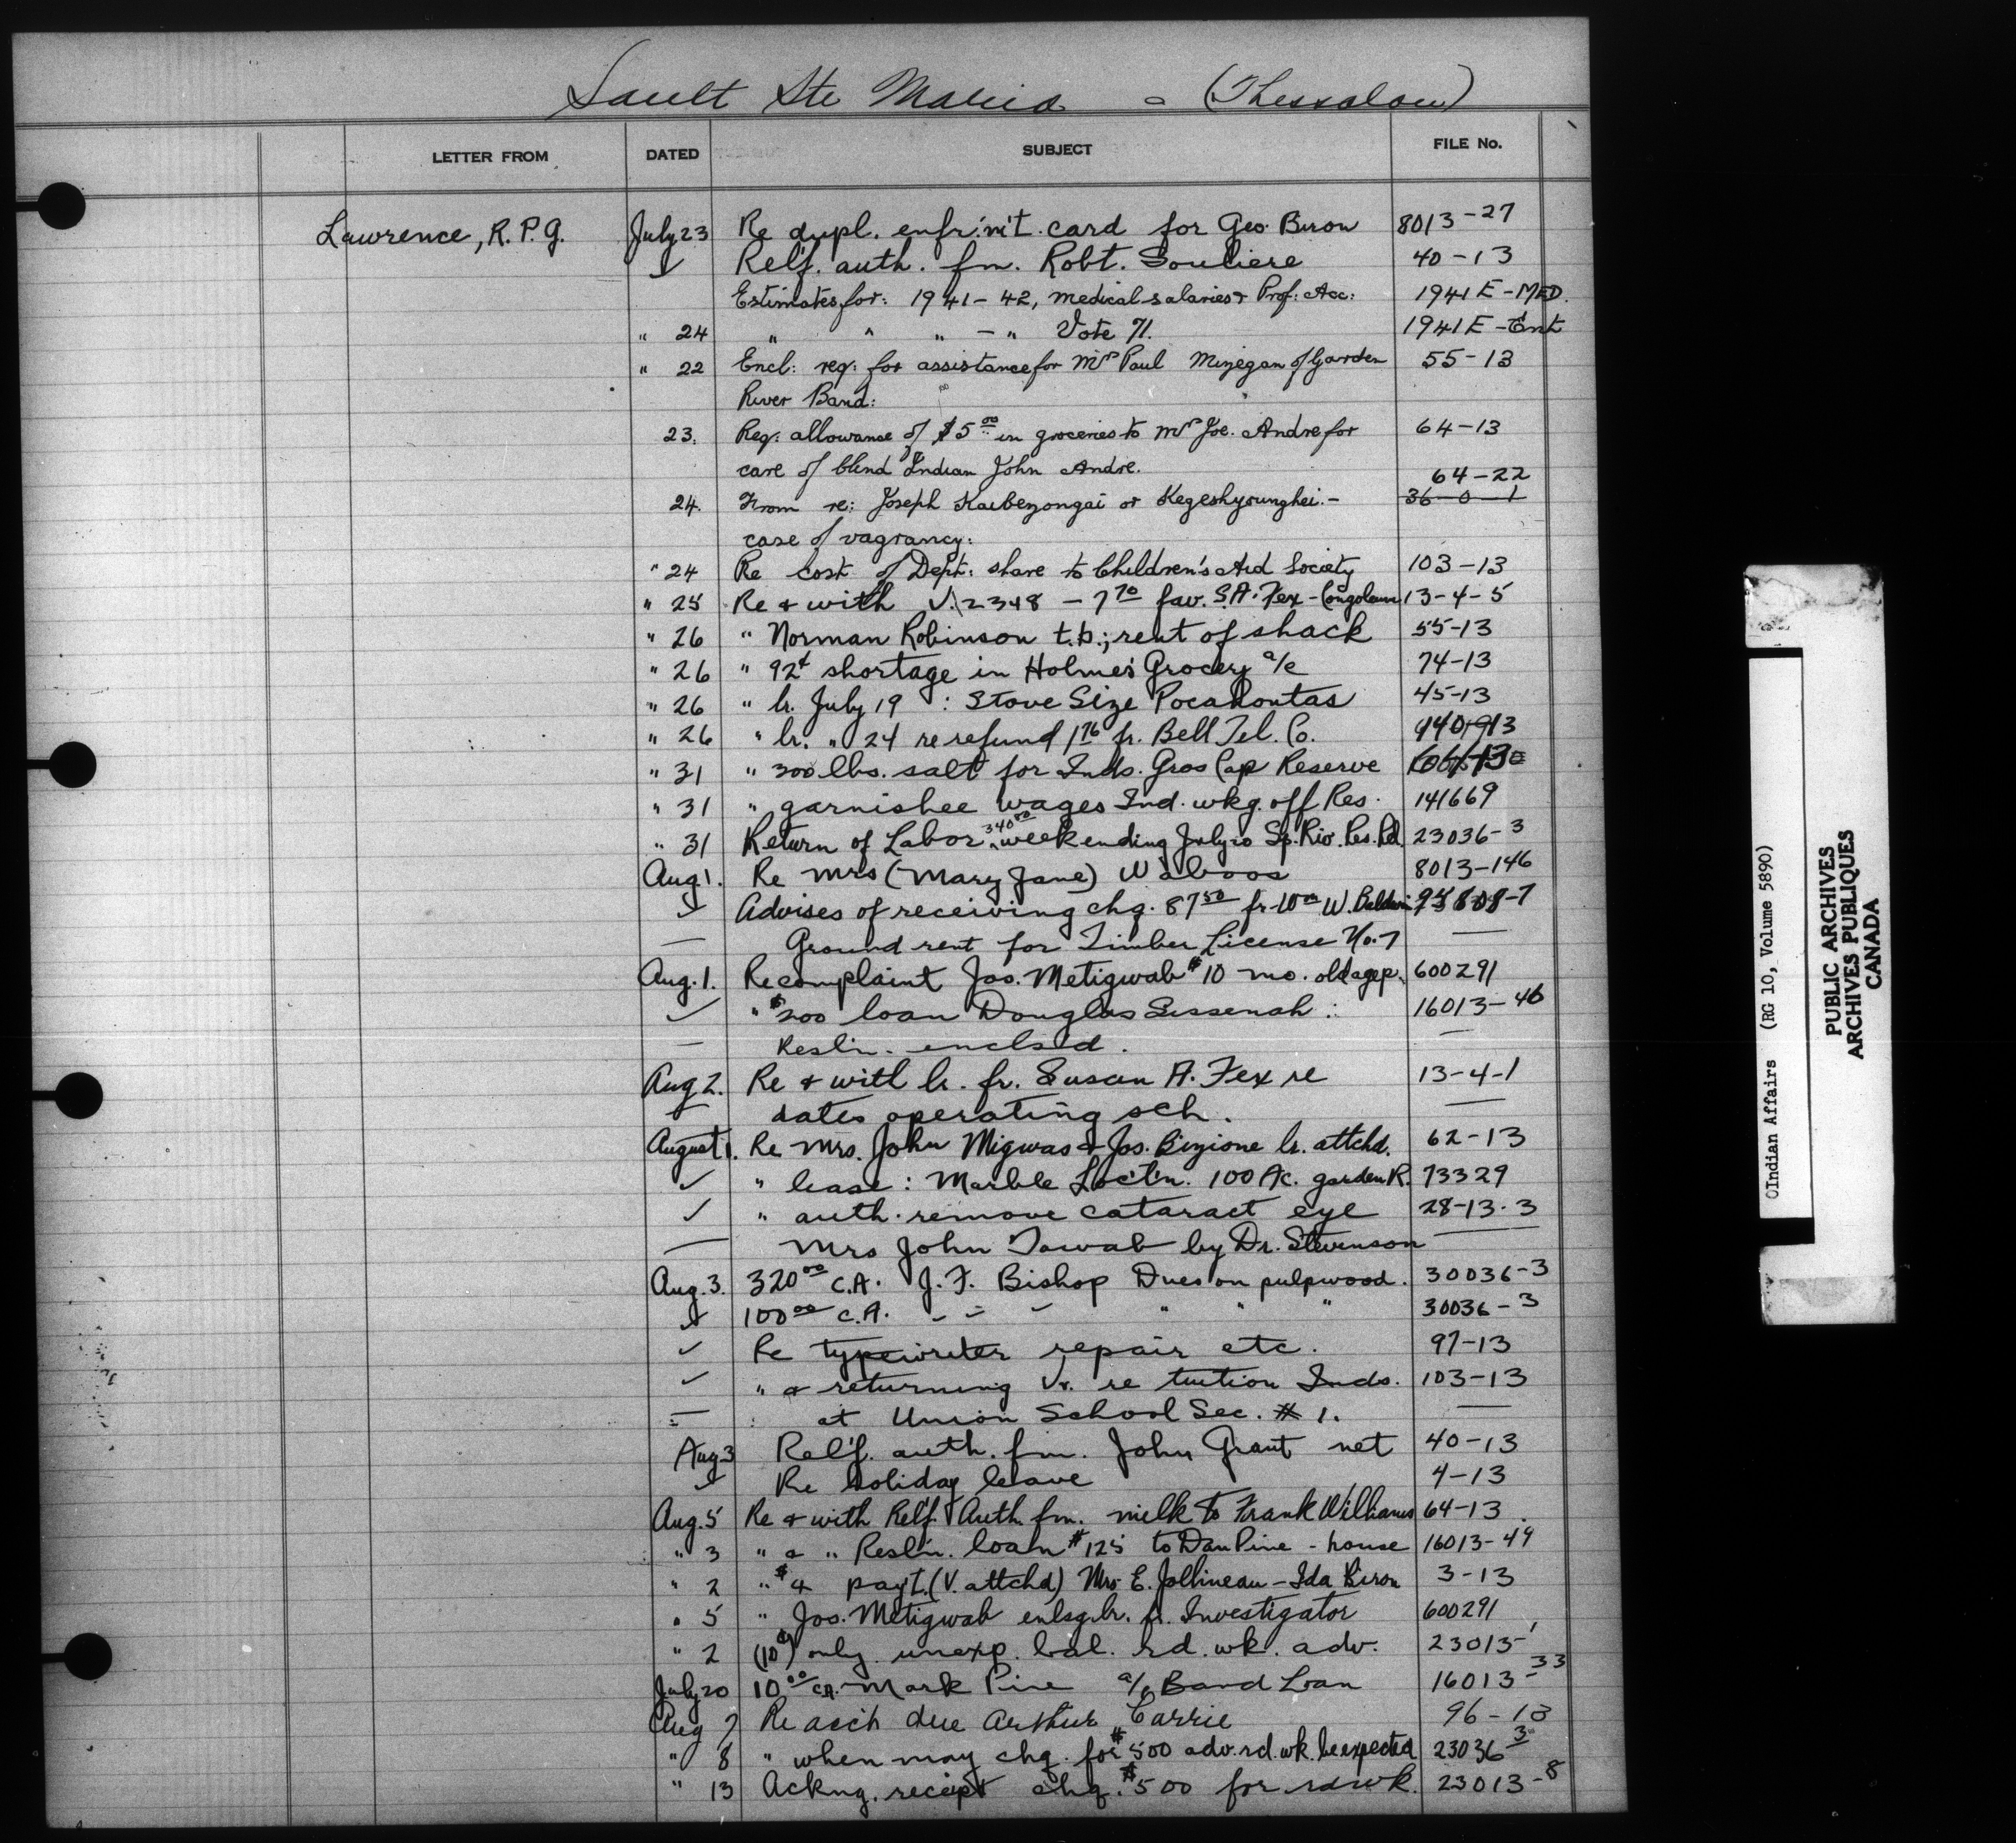 Sault Ste Marie - (Thessalon)
LETTER FROM DATED SUBJECT FILE No.
Lawrence, R.P.G. July 23 Re dupl. enfr.'m't. card for Geo. Biron 8013-27
✓ Rel'f. auth. fm. Robt. Souliere 40-13
Estimates for: 1941-42, medical salaries & Prof: Acc: 1941E-MED.
" 24 " " " - " Vote 71. 1941E-Ent
" 22 Encl: req: for assistance for Mrs Paul Mizegan of Garden 55-13
River Band:
23. Req: allowance of $5.00 in groceries to Mrs Joe. Andre for 64-13
care of blind Indian John Andre.
64-22
24. From re: Joseph Kaibeyongai or Kegeshyounghei.- 36-0-1
case of vagrancy:
" 24 Re cost of Dept: share to Children's Aid Society 103-13
" 25 Re & with V.2348 - 7 70 fav. S.A. Fex - Congoleum 13-4-5
" 26 " Norman Robinson t.b.; rent of shack 55-13
" 26 " 92¢ shortage in Holmes Grocery a/c 74-13
" 26 " lr. July 19 : Stove Size Pocahontas 45-13
" 26 " lr. " 24 re refund 1 76 fr. Bell Tel. Co.
" 31 " 300 lbs. salt for Inds. Gros Cap Reserve
" 31 " garnishee wages Ind. wkg. off Res. 141669
" 31 Return of Labor 340 80 week ending July 20 Sp. Riv. Res. Rd. 23036-3
Aug. 1. Re Mrs (Mary Jane) Waboos 8013-146
✓ Advises of receiving chq. 87 50 fr. Wm W. Baldwin
— Ground rent for Timber License No. 7 —
Aug. 1. Re complaint Jos. Metigwab $10 mo. old age p. 600291
✓ " $200 loan Douglas Sissenah : 16013-46
— Resl'n. enclsd. —
Aug 2. Re & with lr. fr. Susan A. Fex re 13-4-1
— dates operating sch. —
August 1. Re Mrs. John Migwas & Jos. Bizione lr. attchd. 62-13
✓ " lease: Marble Loc't'n. 100 Ac. garden R. 73329
✓ " auth. remove cataract eye 28-13.3
— Mrs John Tawab by Dr. Stevenson —
Aug. 3. 320 00 C.A. J. F. Bishop Dues on pulpwood. 30036-3
✓ 100 00 C.A. " " " " " " 30036-3
✓ Re typewriter repair etc. 97-13
✓ " & returning Vr. re tuition Inds. 103-13
— at Union School Sec. # 1. —
Aug 3 Rel'f. auth. fm. John Grant net 40-13
✓ Re holiday leave 4-13
Aug. 5 Re & with Relf. Auth. fm. milk to Frank Williams 64-13
" 3 " & " Resl'n. loan $125 to Dan Pine - house 16013-49
" 2 " $4 pay't. (V. attchd) Mrs E. Jollineau - Ida Biron 3-13
" 5 " Jos. Metigwab enlsg. lr. fr. Investigator 600291
" 2 (10¢) only unexp. bal. rd. wk. adv. 23013-1
July 20 10 00 C.A. Mark Pine a/c Band Loan 16013-33
Aug 7 Re acct due Arthur Carrie 96-13
" 8 " when may chq. for $500 adv. rd. wk. be expected 23036-3
" 13 Ackng. receipt chq. $500 for rd wk. 23013-8
©Indian Affairs (RG 10, Volume 5890)
PUBLIC ARCHIVES
ARCHIVES PUBLIQUES
CANADA